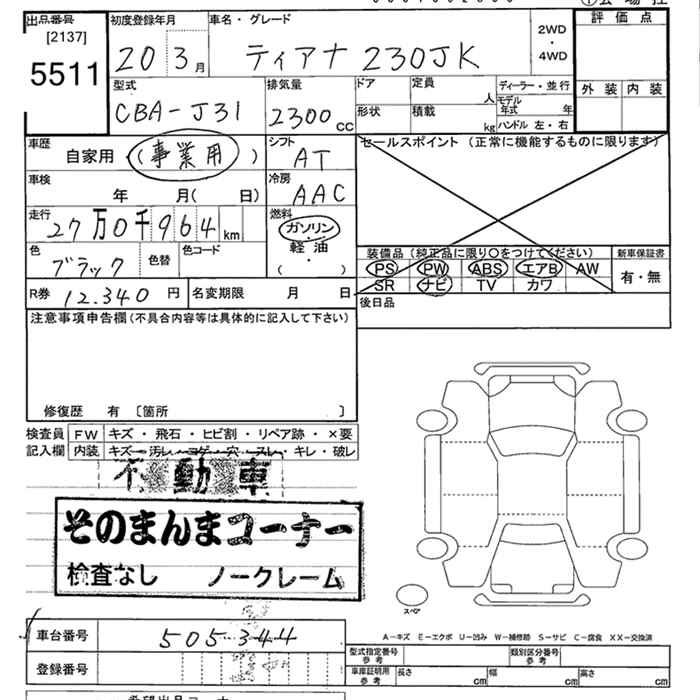 出品番号
[2137]
5511
初度登録年月
20 3月
車名・グレード
ティアナ 230JK
2WD
・
4WD
評価点
外装 内装
型式
CBA-J31
排気量
2300 CC
ドア
形状
定員 人
積載 kg
ディーラー・並行
モデル年式 年
ハンドル 左・右
車歴
自家用・(事業用)
シフト
AT
車検
年 月( 日)
冷房
AAC
走行
27万0千964 km
燃料
ガソリン
軽油
( ・ )
色
ブラック
色替
色コード
R券 12.340 円
名変期限 月 日
セールスポイント (正常に機能するものに限ります)
装備品 (純正品に限り○をつけてください)
PS PW ABS エアB AW
SR ナビ TV カワ
新車保証書
有・無
後日品
注意事項申告欄(不具合内容等は具体的に記入して下さい)
修復歴 有 〔箇所 〕
検査員 FW キズ・飛石・ヒビ割・リペア跡・×要
記入欄 内装 キズ・汚レ・コゲ・穴・スレ・キレ・破レ
不動車
そのまんまコーナー
検査なし ノークレーム
スペア
車台番号 505344
登録番号
A-キズ E-エクボ U-凹み W-補修跡 S-サビ C-腐食 XX-交換済
型式指定番号
参考
類別区分番号
参考
車庫証明用
参考
長さ cm 幅 cm 高さ cm